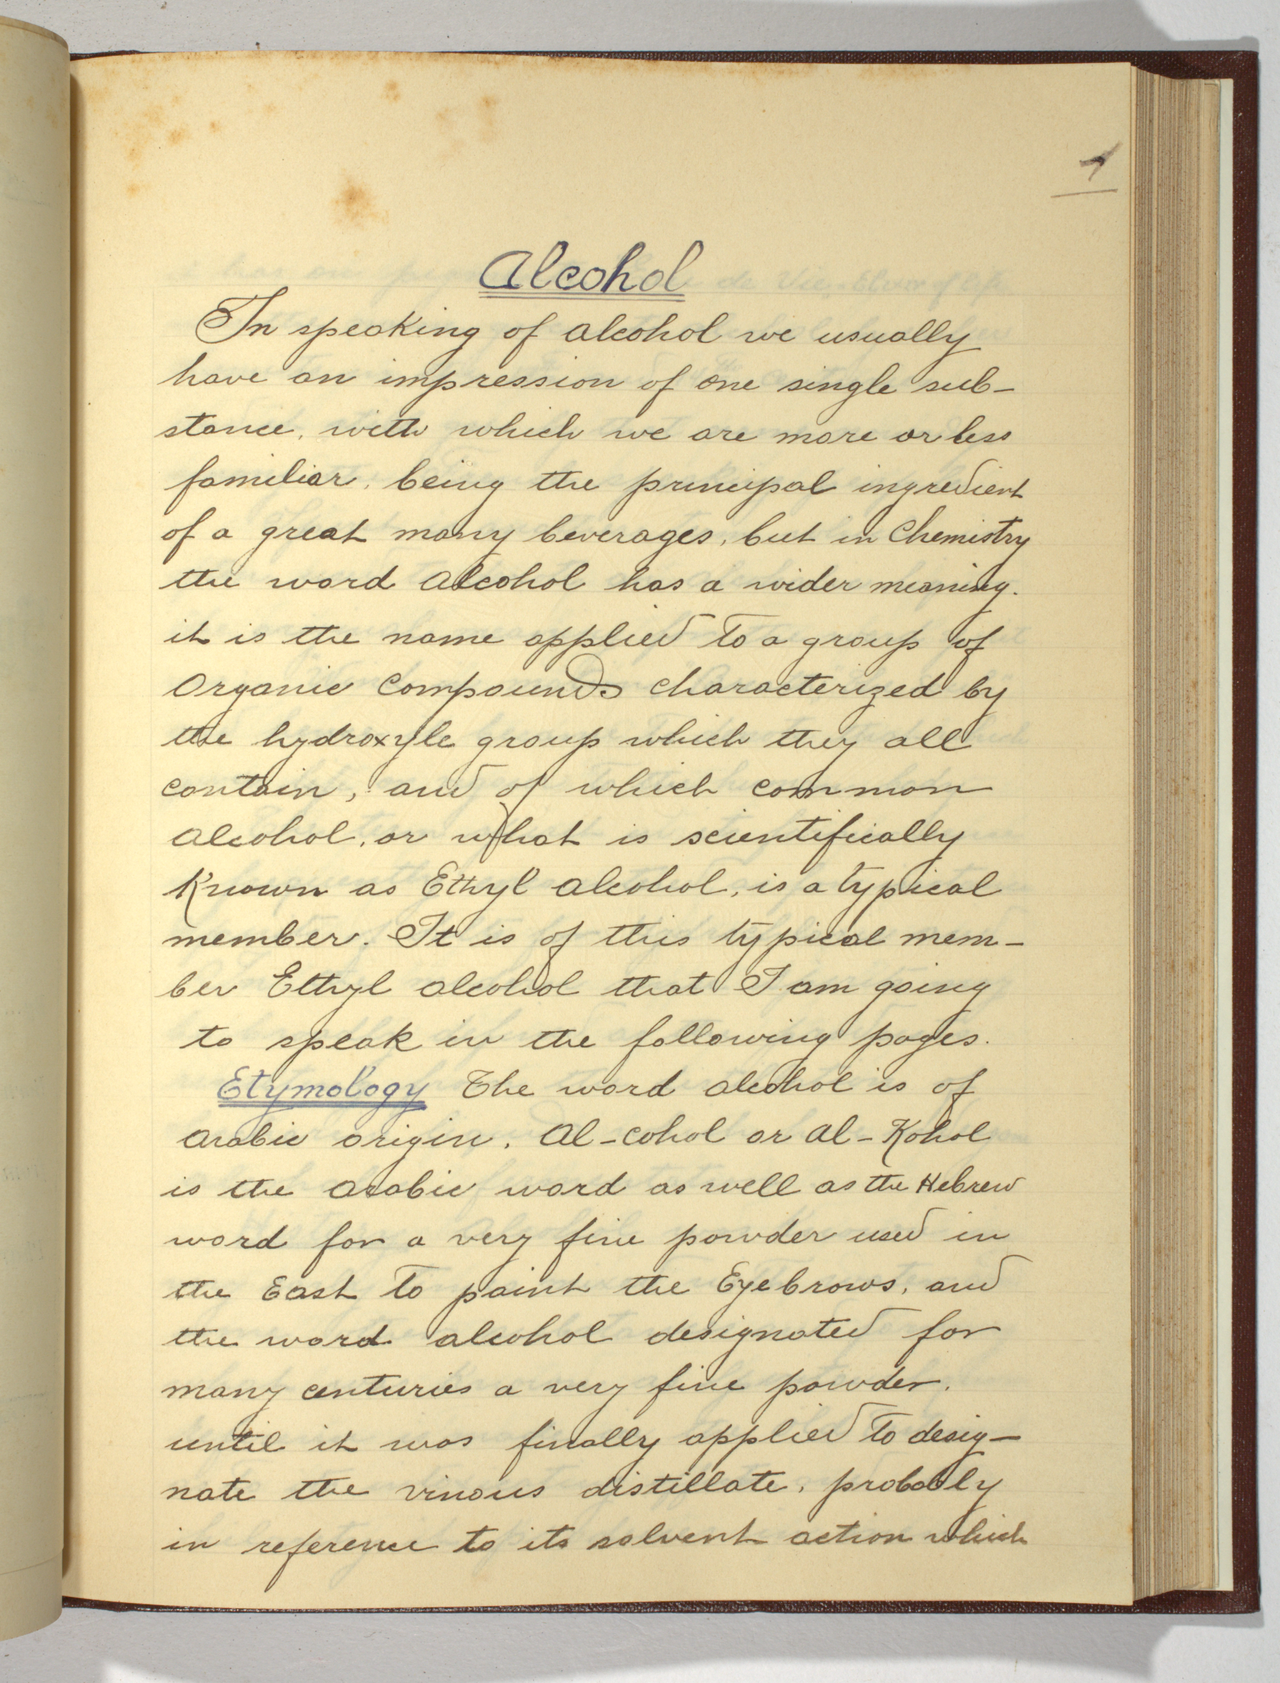 1
Alcohol
In speaking of alcohol we usually
have an impression of one single sub-
stance, with which we are more or less
familiar, being the principal ingredient
of a great many beverages, but in Chemistry
the word alcohol has a wider meaning.
it is the name applied to a group of
Organic Compounds characterized by
the hydroxyle group which they all
contain, and of which common
alcohol, or what is scientifically
Known as Ethyl alcohol, is a typical
member. It is of this typical mem-
ber Ethyl alcohol that I am going
to speak in the following pages.
Etymology The word alcohol is of
arabic origin. Al-cohol or al-Kohol
is the arabic word as well as the Hebrew
word for a very fine powder used in
the East to paint the Eyebrows, and
the word alcohol designated for
many centuries a very fine powder.
until it was finally applied to desig-
nate the vinous distillate, probably
in reference to its solvent action which